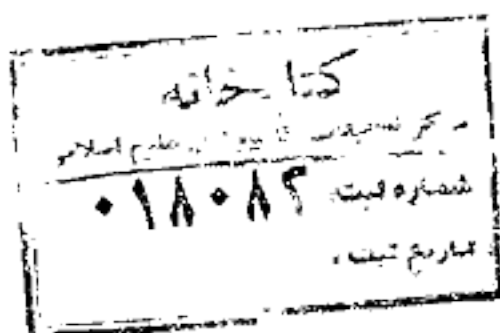 کتابخانه
مرکز تحقیقات کامپیوتری علوم اسلامی
شماره ثبت: ۰۱۸۰۸۲
تاریخ ثبت: